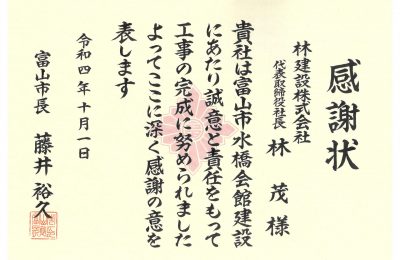 感謝状
林建設株式会社
代表取締役社長 林 茂 様
貴社は富山市水橋会館建設
にあたり誠意と責任をもって
工事の完成に努められました
よってここに深く感謝の意を
表します
令和四年十月一日
富山市長 藤井裕久